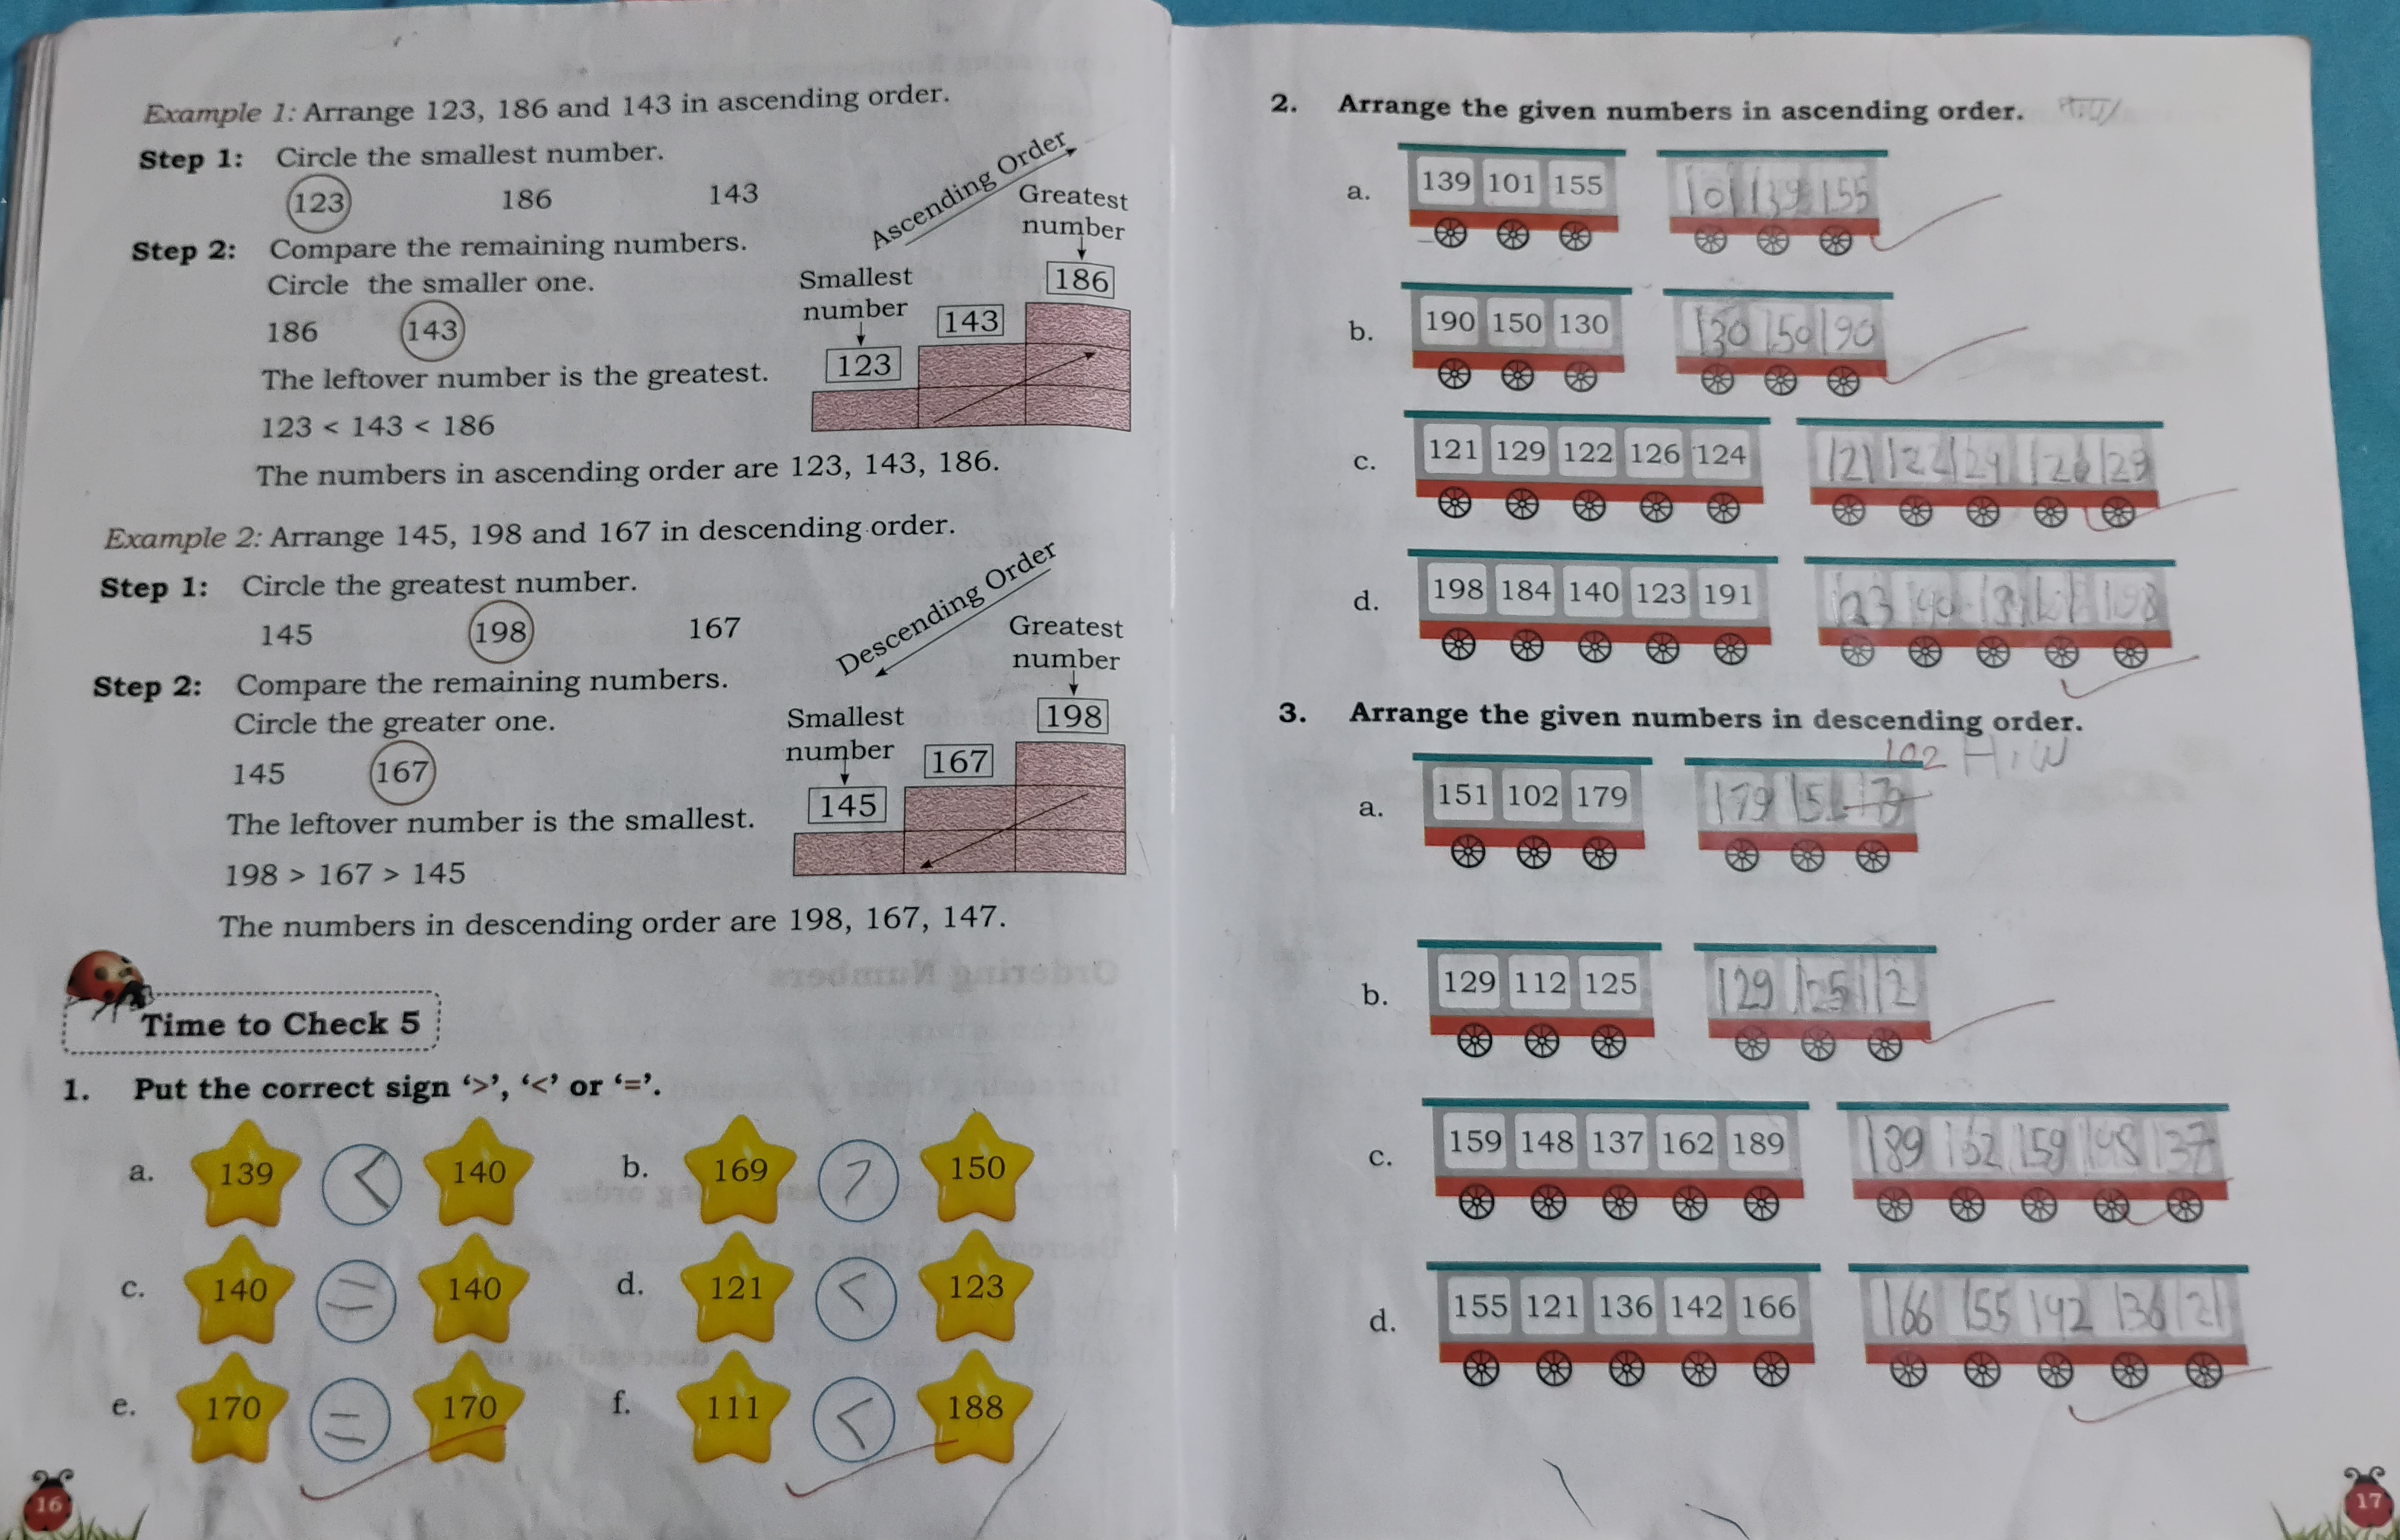 Example 1: Arrange 123, 186 and 143 in ascending order.
Step 1: Circle the smallest number.
123 186 143
Step 2: Compare the remaining numbers.
Circle the smaller one.
186 143
The leftover number is the greatest.
123 < 143 < 186
The numbers in ascending order are 123, 143, 186.
Ascending Order
Greatest
number
186
Smallest
number
143
123
Example 2: Arrange 145, 198 and 167 in descending order.
Step 1: Circle the greatest number.
145 198 167
Step 2: Compare the remaining numbers.
Circle the greater one.
145 167
The leftover number is the smallest.
198 > 167 > 145
The numbers in descending order are 198, 167, 147.
Descending Order
Greatest
number
198
Smallest
number
167
145
Time to Check 5
1. Put the correct sign ‘>’, ‘<’ or ‘=’.
a. 139 < 140 b. 169 > 150
c. 140 = 140 d. 121 < 123
e. 170 = 170 f. 111 < 188
16
2. Arrange the given numbers in ascending order.
a. 139 101 155 101 139 155
b. 190 150 130 130 150 190
c. 121 129 122 126 124 121 122 124 126 129
d. 198 184 140 123 191 123 140 198
3. Arrange the given numbers in descending order.
102 H.W
a. 151 102 179 179 151
b. 129 112 125 129 125 112
c. 159 148 137 162 189 189 162 159 148 137
d. 155 121 136 142 166 166 155 142 136 121
17